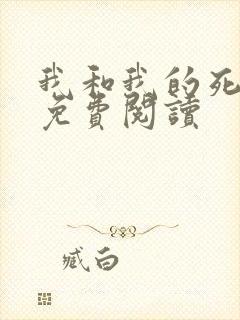 我和我的死
免費閱讀
臧白